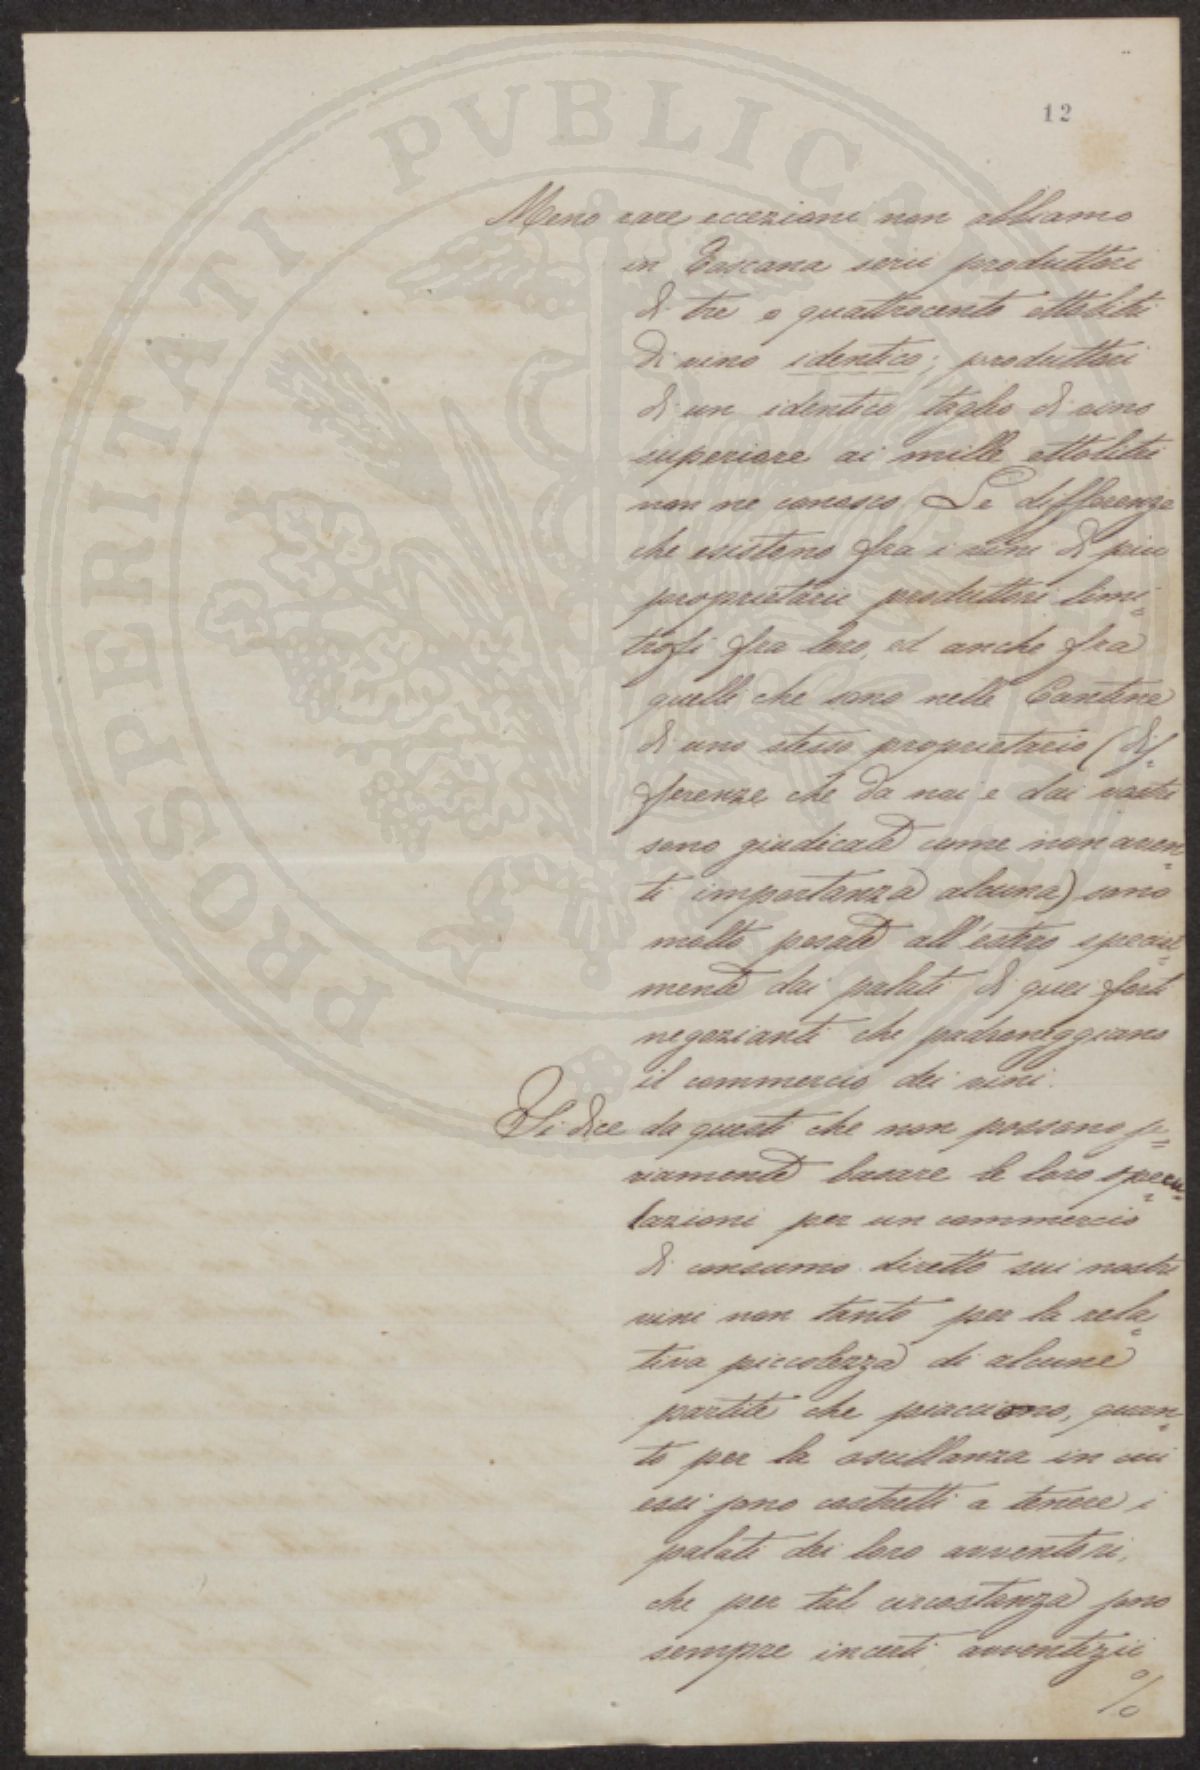 12
Meno rare eccezioni non abbiamo
in Toscana serii produttori
di tre o quattrocento ettolitri
di vino identico; produttori
di un identico taglio di vino
superiore ai mille ettolitri
non ne conosco. Le differenze
che esistono fra i vini di più
proprietarii produttori limi=
trofi fra loro, ed anche fra
quelli che sono nelle Cantine
di uno stesso proprietario (dif=
ferenze che da noi e dai nostri
sono giudicate come non aven=
ti importanza alcuna) sono
molto pesate all'estero special=
mente dai palati di quei forti
negozianti che padroneggiano
il commercio dei vini.
Si dice da questi che non possono se=
riamente basare le loro specu=
lazioni per un commercio
di consumo diretto sui nostri
vini non tanto per la rela=
tiva piccolezza di alcune
partite che piacciono, quan=
to per la oscillanza in cui
essi sono costretti a tenere i
palati dei loro avventori,
che per tal circostanza sono
sempre incerti avventizii
%
PROSPERITATI PVBLICAE